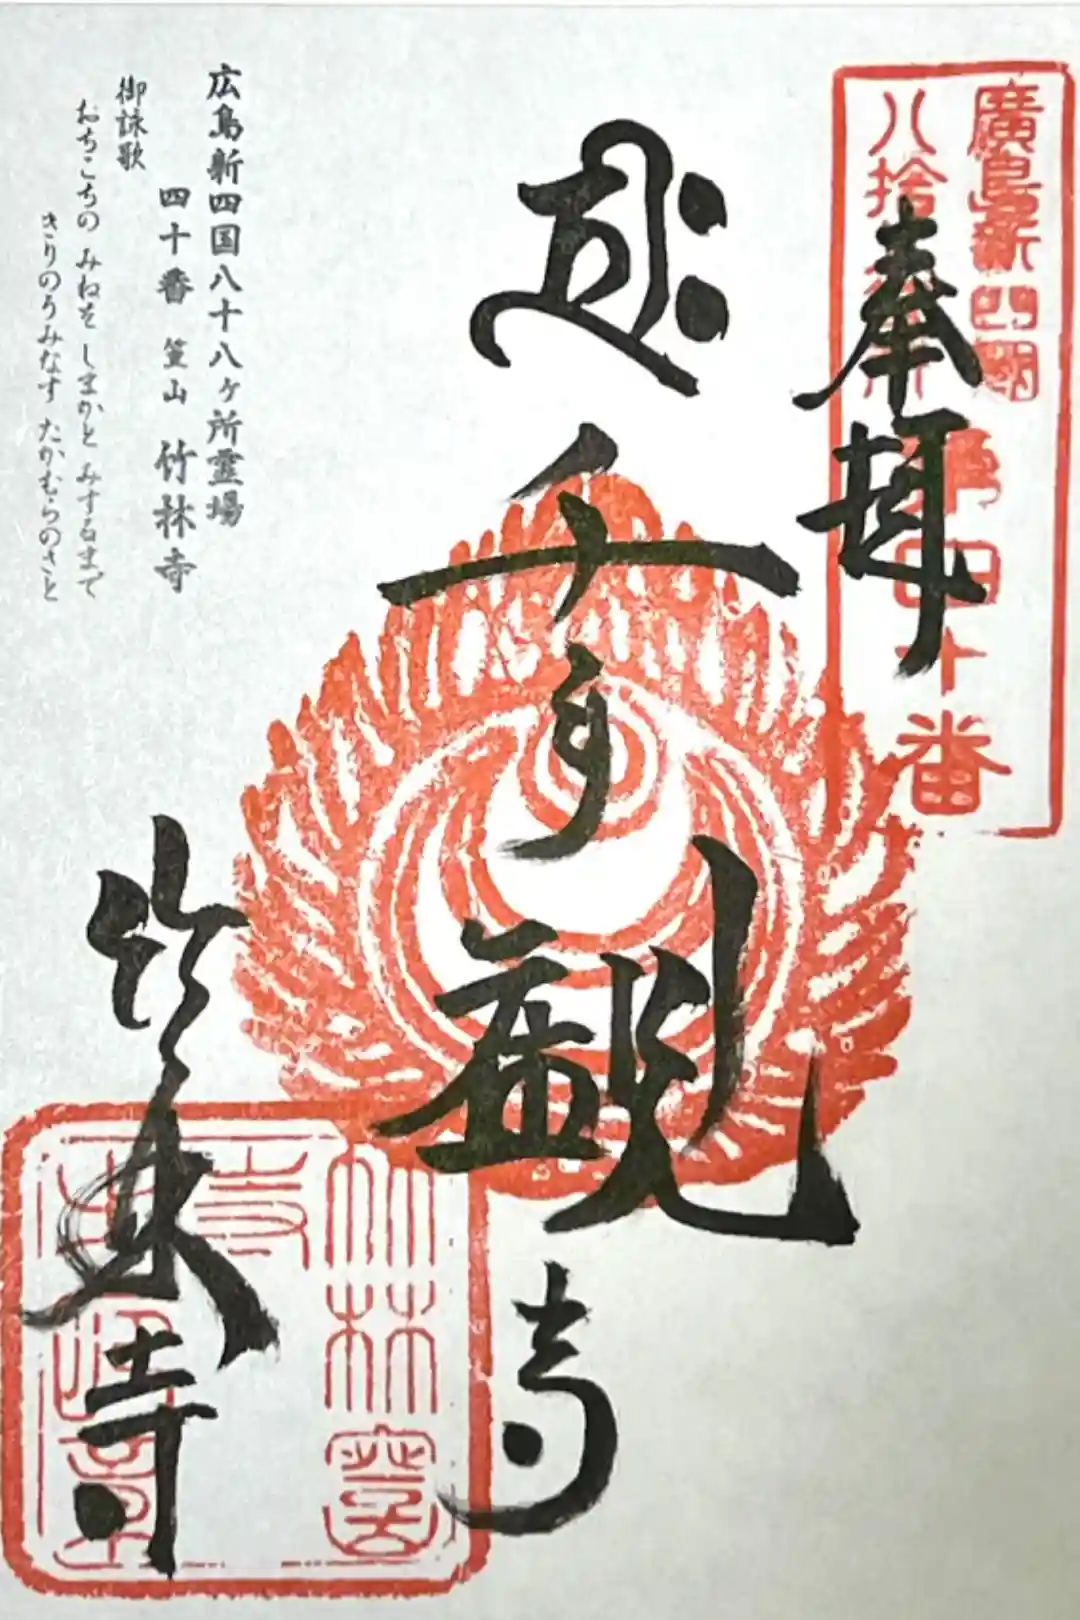 廣島新四國
八拾
第四十番
奉拝
千手観音
竹林寺
広島新四国八十八ヶ所霊場
四十番 笠山 竹林寺
御詠歌
おちこちの みねを しまかと みするまで
きりのうみなす たかむらのさと